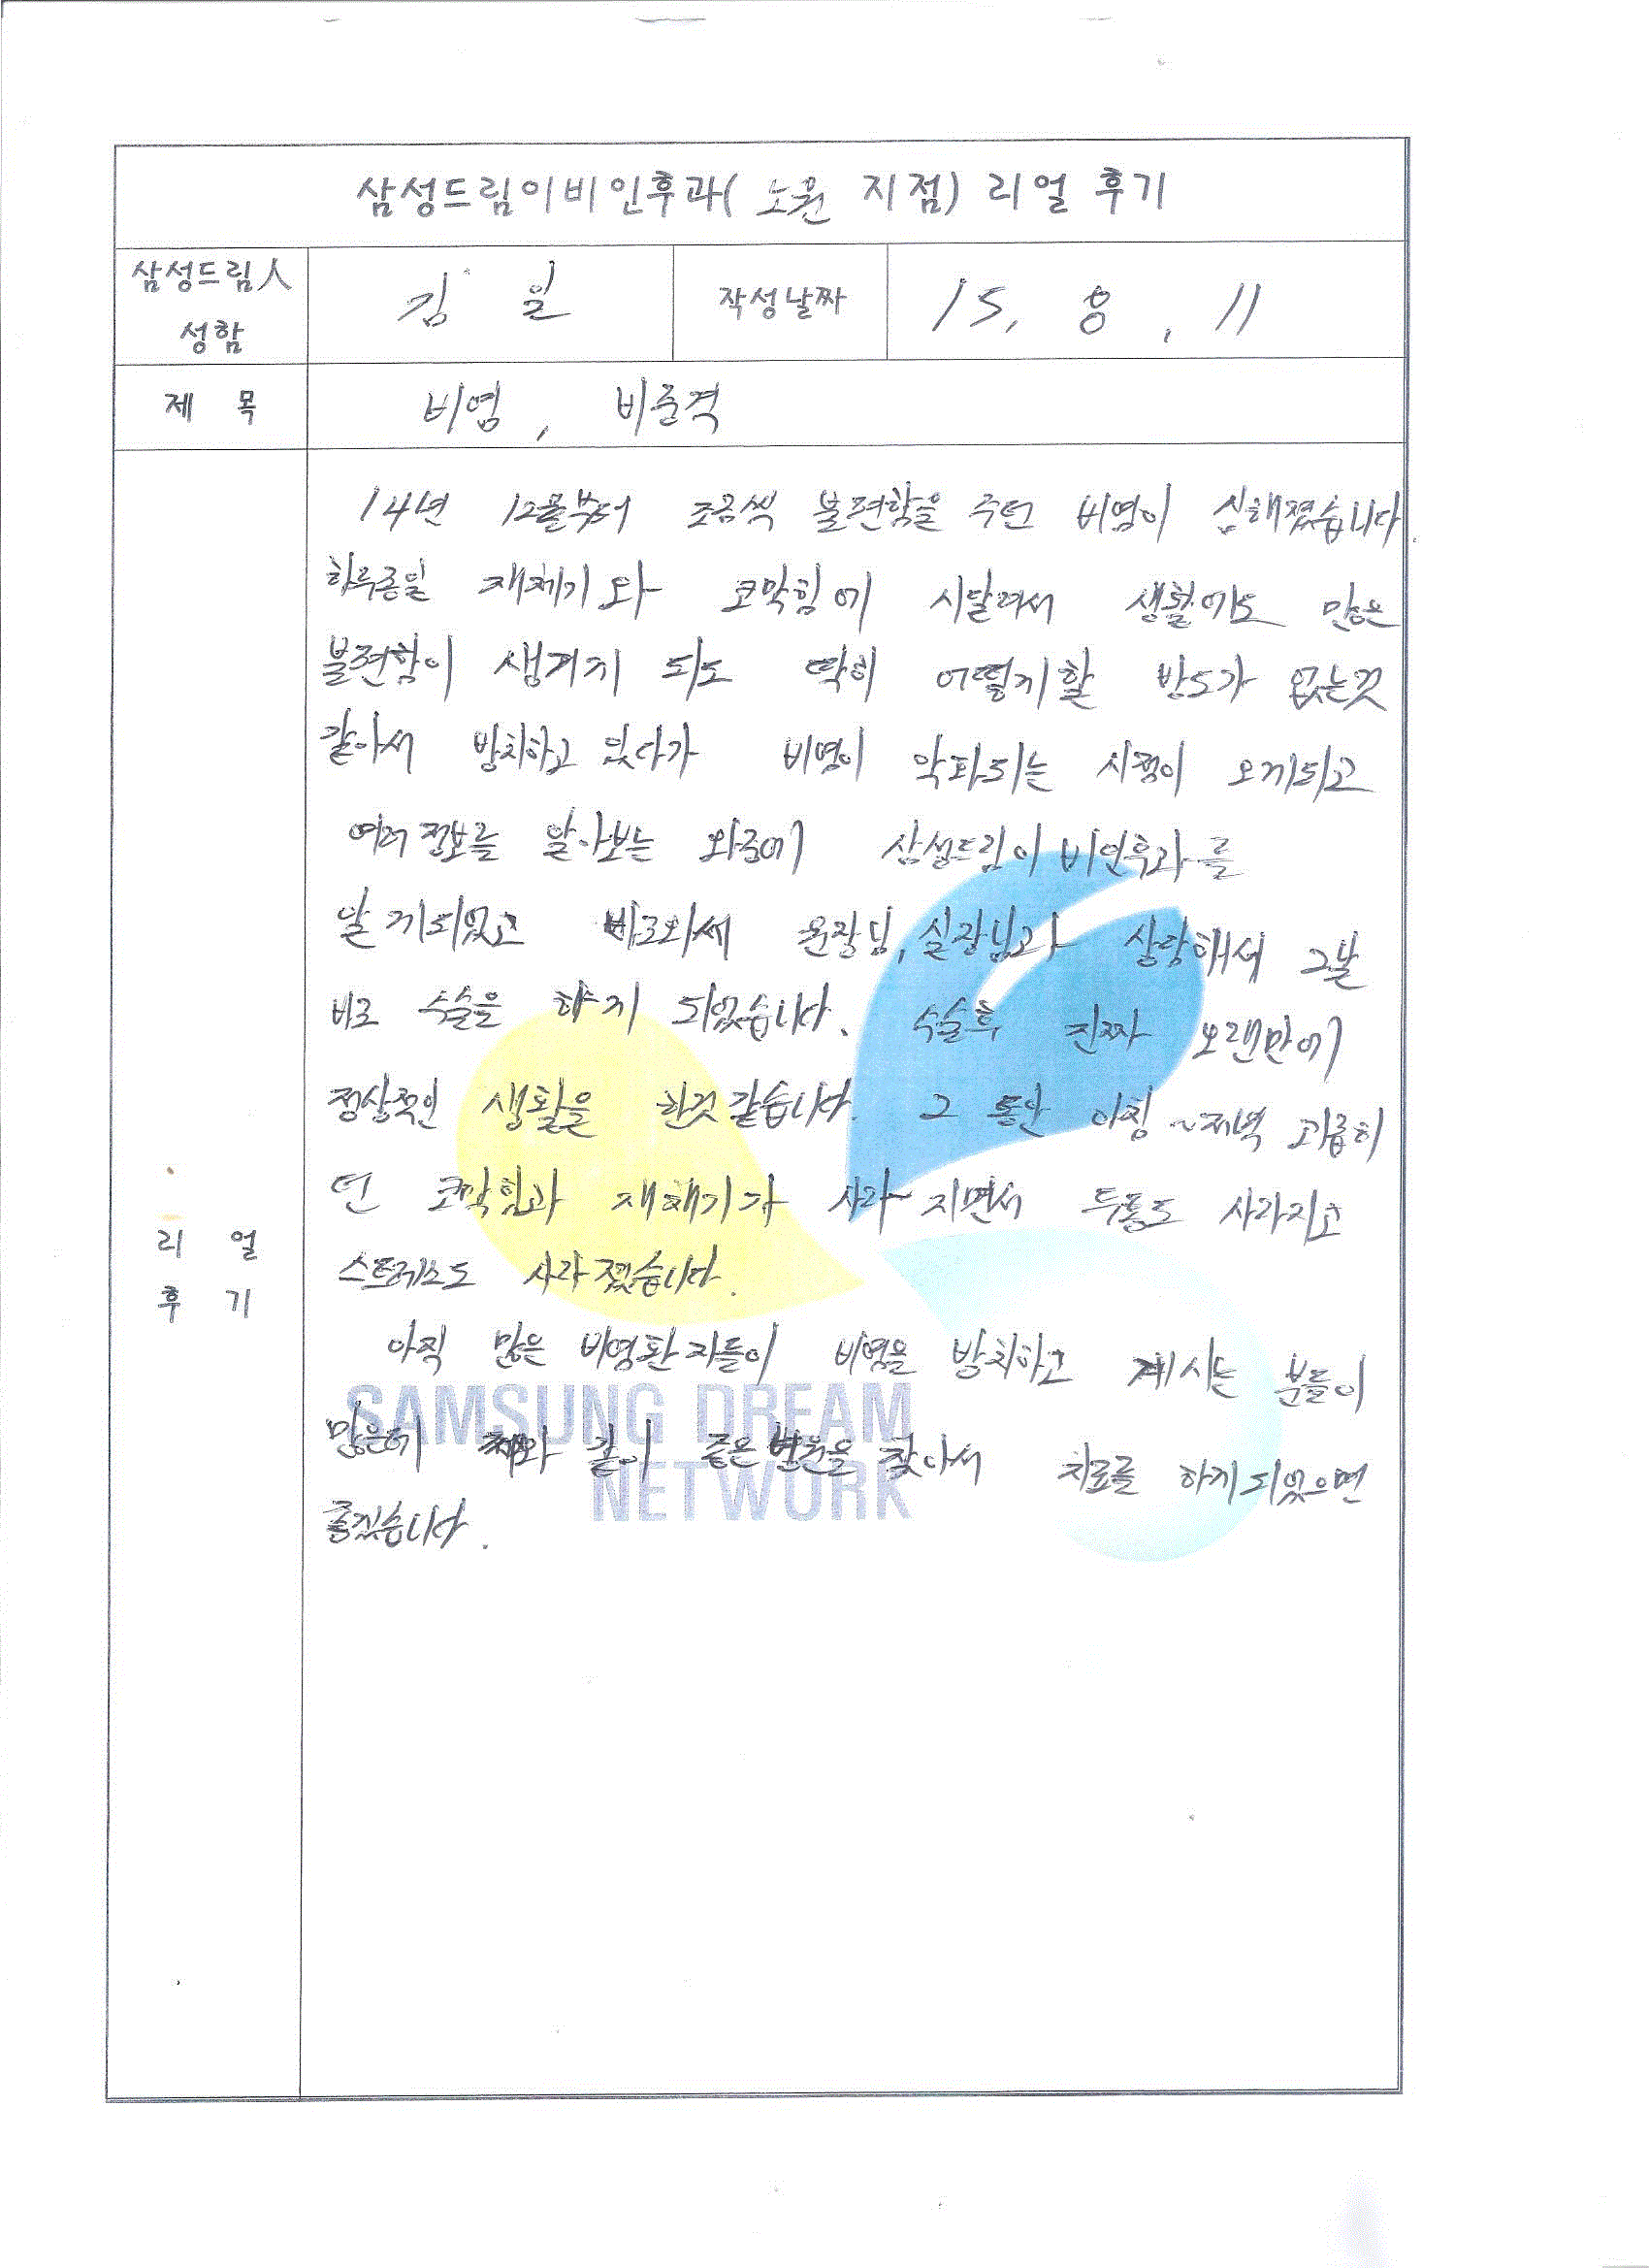 삼성드림이비인후과( 노원 지점) 리얼 후기
삼성드림人 성함
김 일
작성날짜
15. 8. 11
제 목
비염, 비중격
리 얼 후 기
14년 12월부터 조금씩 불편함을 주던 비염이 심해졌습니다.
하루종일 재체기와 코막힘에 시달려서 생활에도 많은
불편함이 생기게 되도 딱히 어떻게할 방도가 없는것
같아서 방치하고 있다가 비염이 악화되는 시점이 오게되고
여러정보를 알아보는 와중에 삼성드림이비인후과를
알게되었고 바로와서 원장님, 실장님과 상담해서 그날
바로 수술을 하게 되었습니다. 수술후 진짜 오랜만에
정상적인 생활을 한것같습니다. 그 동안 아침~저녁 괴롭히
던 코막힘과 재채기가 사라지면서 두통도 사라지고
스트레스도 사라졌습니다.
아직 많은 비염환자들이 비염을 방치하고 계시는 분들이
많은데 저와 같이 좋은병원을 찾아서 치료를 하게되었으면
좋겠습니다.
SAMSUNG DREAM
NETWORK